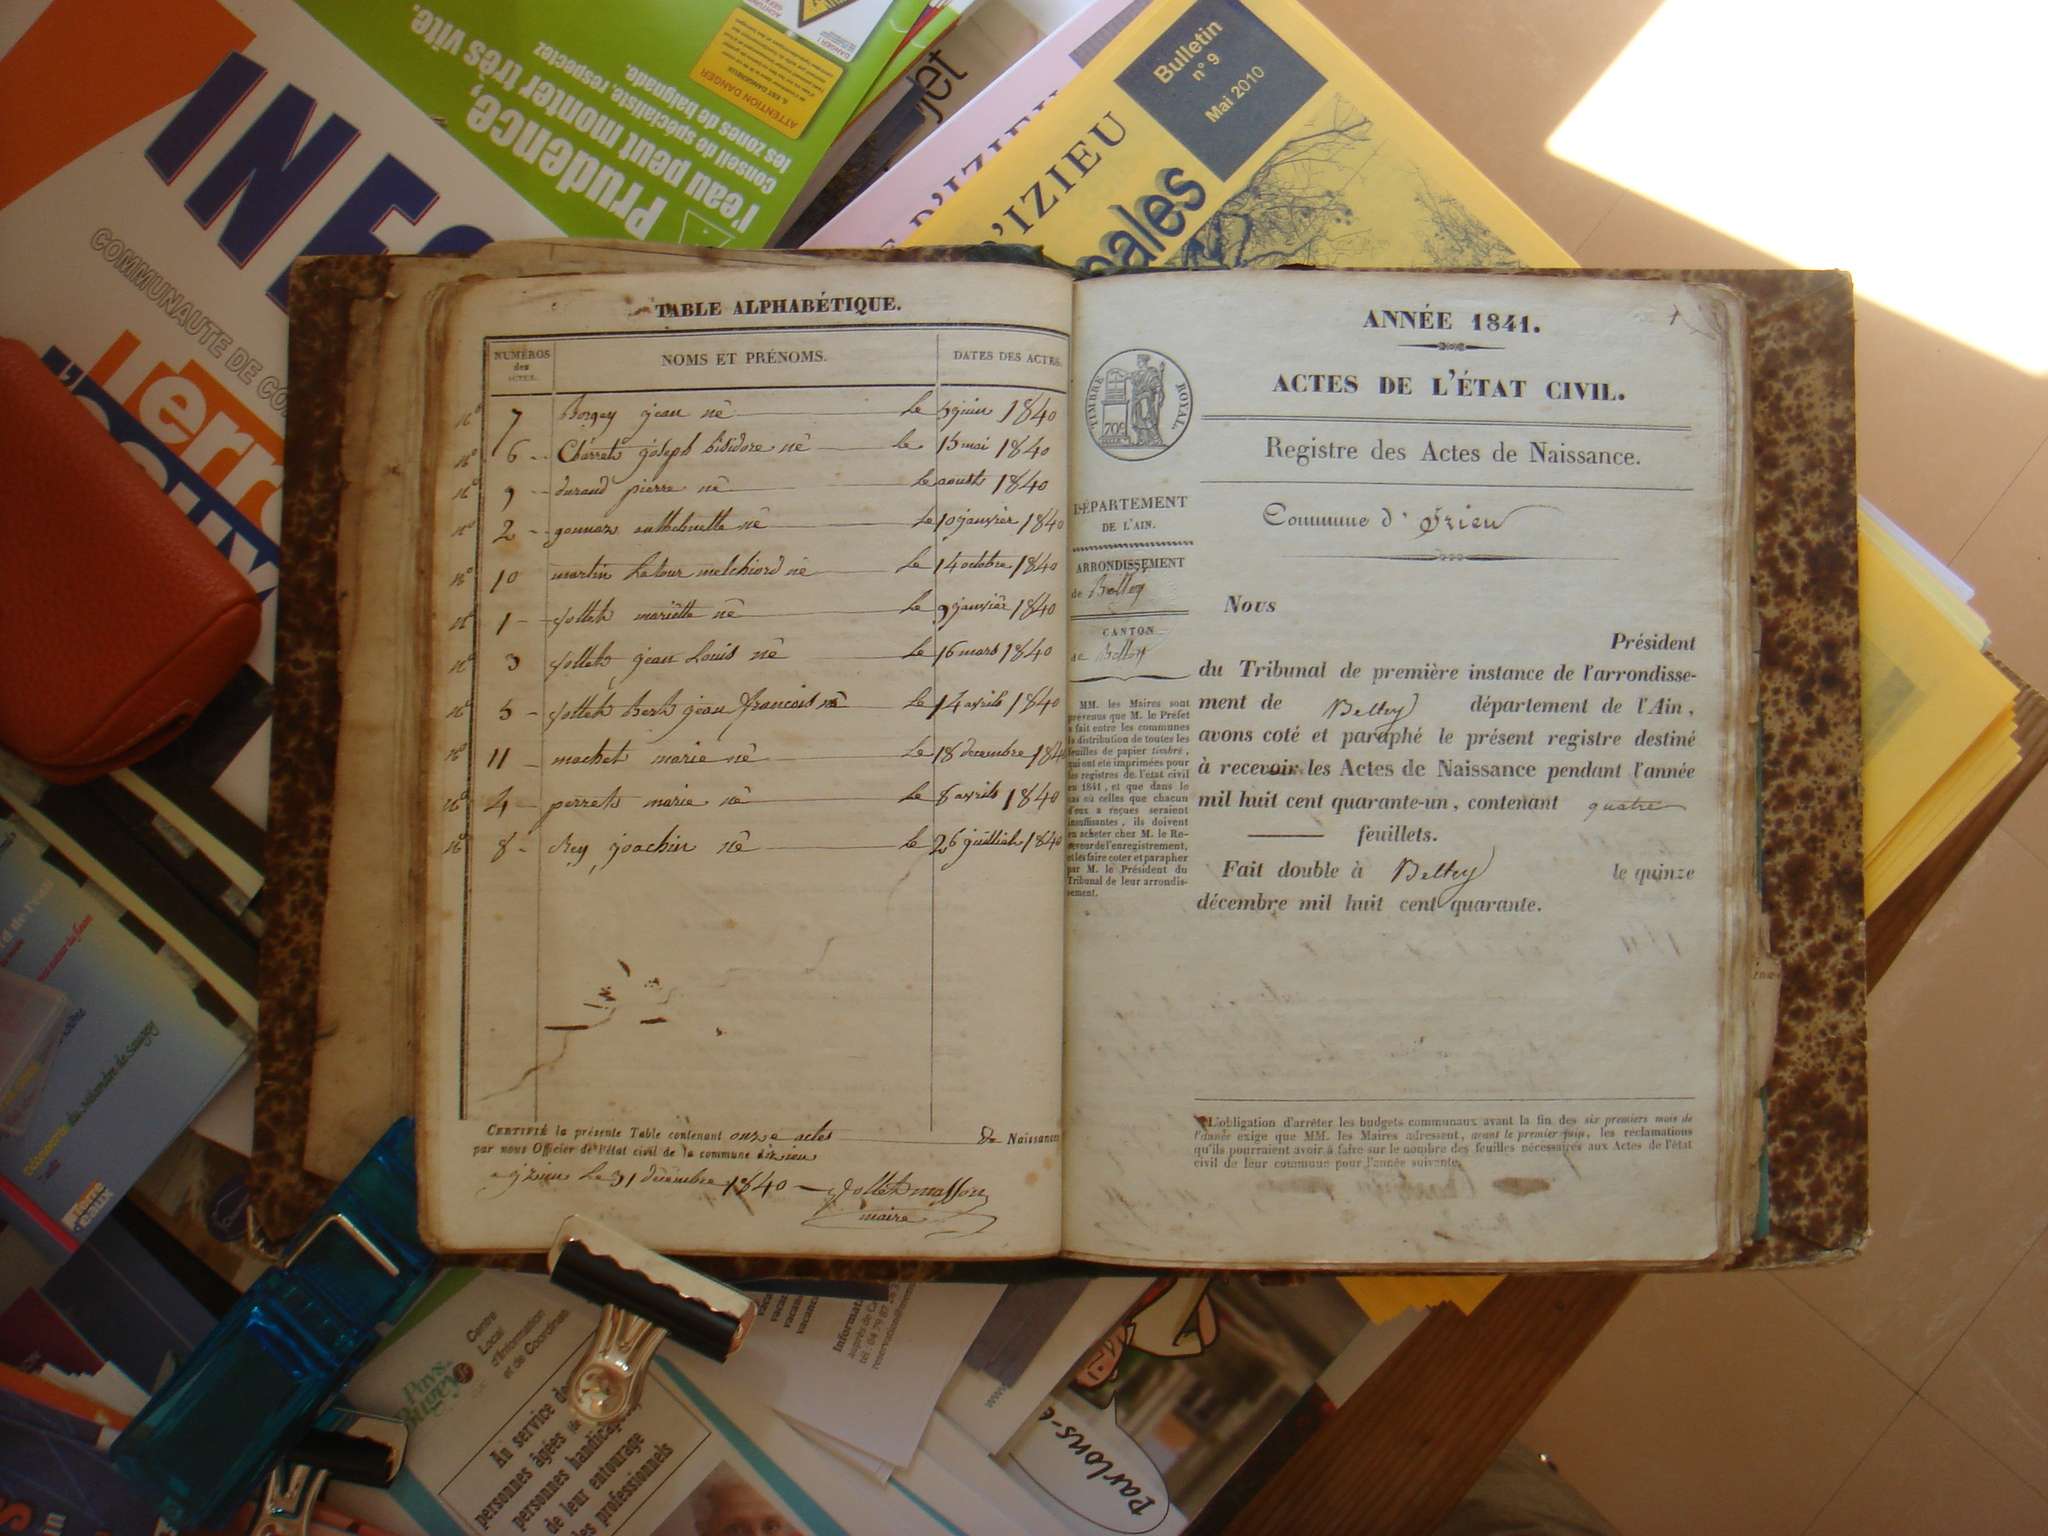 INFO
COMMUNAUTE DE CO
Terr
Prudence,
l'eau peut monter très vite.
conseil de spécialiste, respectez
les zones de baignade.
ATTENTION DANGER
jet
D'IZIEU
D'IZIEU
pales
Bulletin
n° 9
Mai 2010
TABLE ALPHABÉTIQUE.
NUMÉROS
des
ACTES.
NOMS ET PRÉNOMS.
DATES DES ACTES.
n° 7 Borgey jean né le 9 juin 1840
n° 6 Charret joseph né le 15 mai 1840
n° 9 durand pierre né le aoust 1840
n° 2 né le 10 janvier 1840
n° 10 martin Latour melchiord né le 14 octobre 1840
n° 1 jolleth mariette né le 9 janvier 1840
n° 3 jolleth jean Louis né le 16 mars 1840
n° 5 jolleth jean francois né le 14 avrils 1840
n° 11 machet marie né le 18 decembre 1840
n° 4 perret marie né le 8 avrils 1840
n° 8 Rey joachin né le 26 1840
CERTIFIÉ la présente Table contenant onze actes De Naissance
par nous Officier de l'état civil de la commune dizieu
a izieu le 31 décembre 1840 jolleth masson
maire
ANNÉE 1841.
ACTES DE L'ÉTAT CIVIL.
TIMBRE ROYAL
70c
Registre des Actes de Naissance.
Commune d' Izieu
DÉPARTEMENT
DE L'AIN.
ARRONDISSEMENT
de Belley
CANTON
de Belley
MM. les Maires sont
prévenus que M. le Préfet
a fait entre les communes
la distribution de toutes les
feuilles de papier timbré,
qui ont été imprimées pour
les registres de l'état civil
en 1841, et que dans le
cas où celles que chacun
d'eux a reçues seraient
insuffisantes, ils doivent
en acheter chez M. le Re-
ceveur de l'enregistrement,
et les faire coter et parapher
par M. le Président du
Tribunal de leur arrondis-
sement.
Nous
Président
du Tribunal de première instance de l'arrondisse-
ment de Belley département de l'Ain,
avons coté et paraphé le présent registre destiné
à recevoir les Actes de Naissance pendant l'année
mil huit cent quarante-un, contenant quatre
feuillets.
Fait double à Belley le quinze
décembre mil huit cent quarante.
L'obligation d'arrêter les budgets communaux avant la fin des six premiers mois de
l'année exige que MM. les Maires adressent, avant le premier juin, les réclamations
qu'ils pourraient avoir à faire sur le nombre des feuilles nécessaires aux Actes de l'état
civil de leur commune pour l'année suivante.
Terre
d'eaux
Pays
Bugey
Centre
Local
d'Information
et de Coordination
Au service des
personnes âgées
personnes handicap
de leur entourage
les professionnels
Parlons-